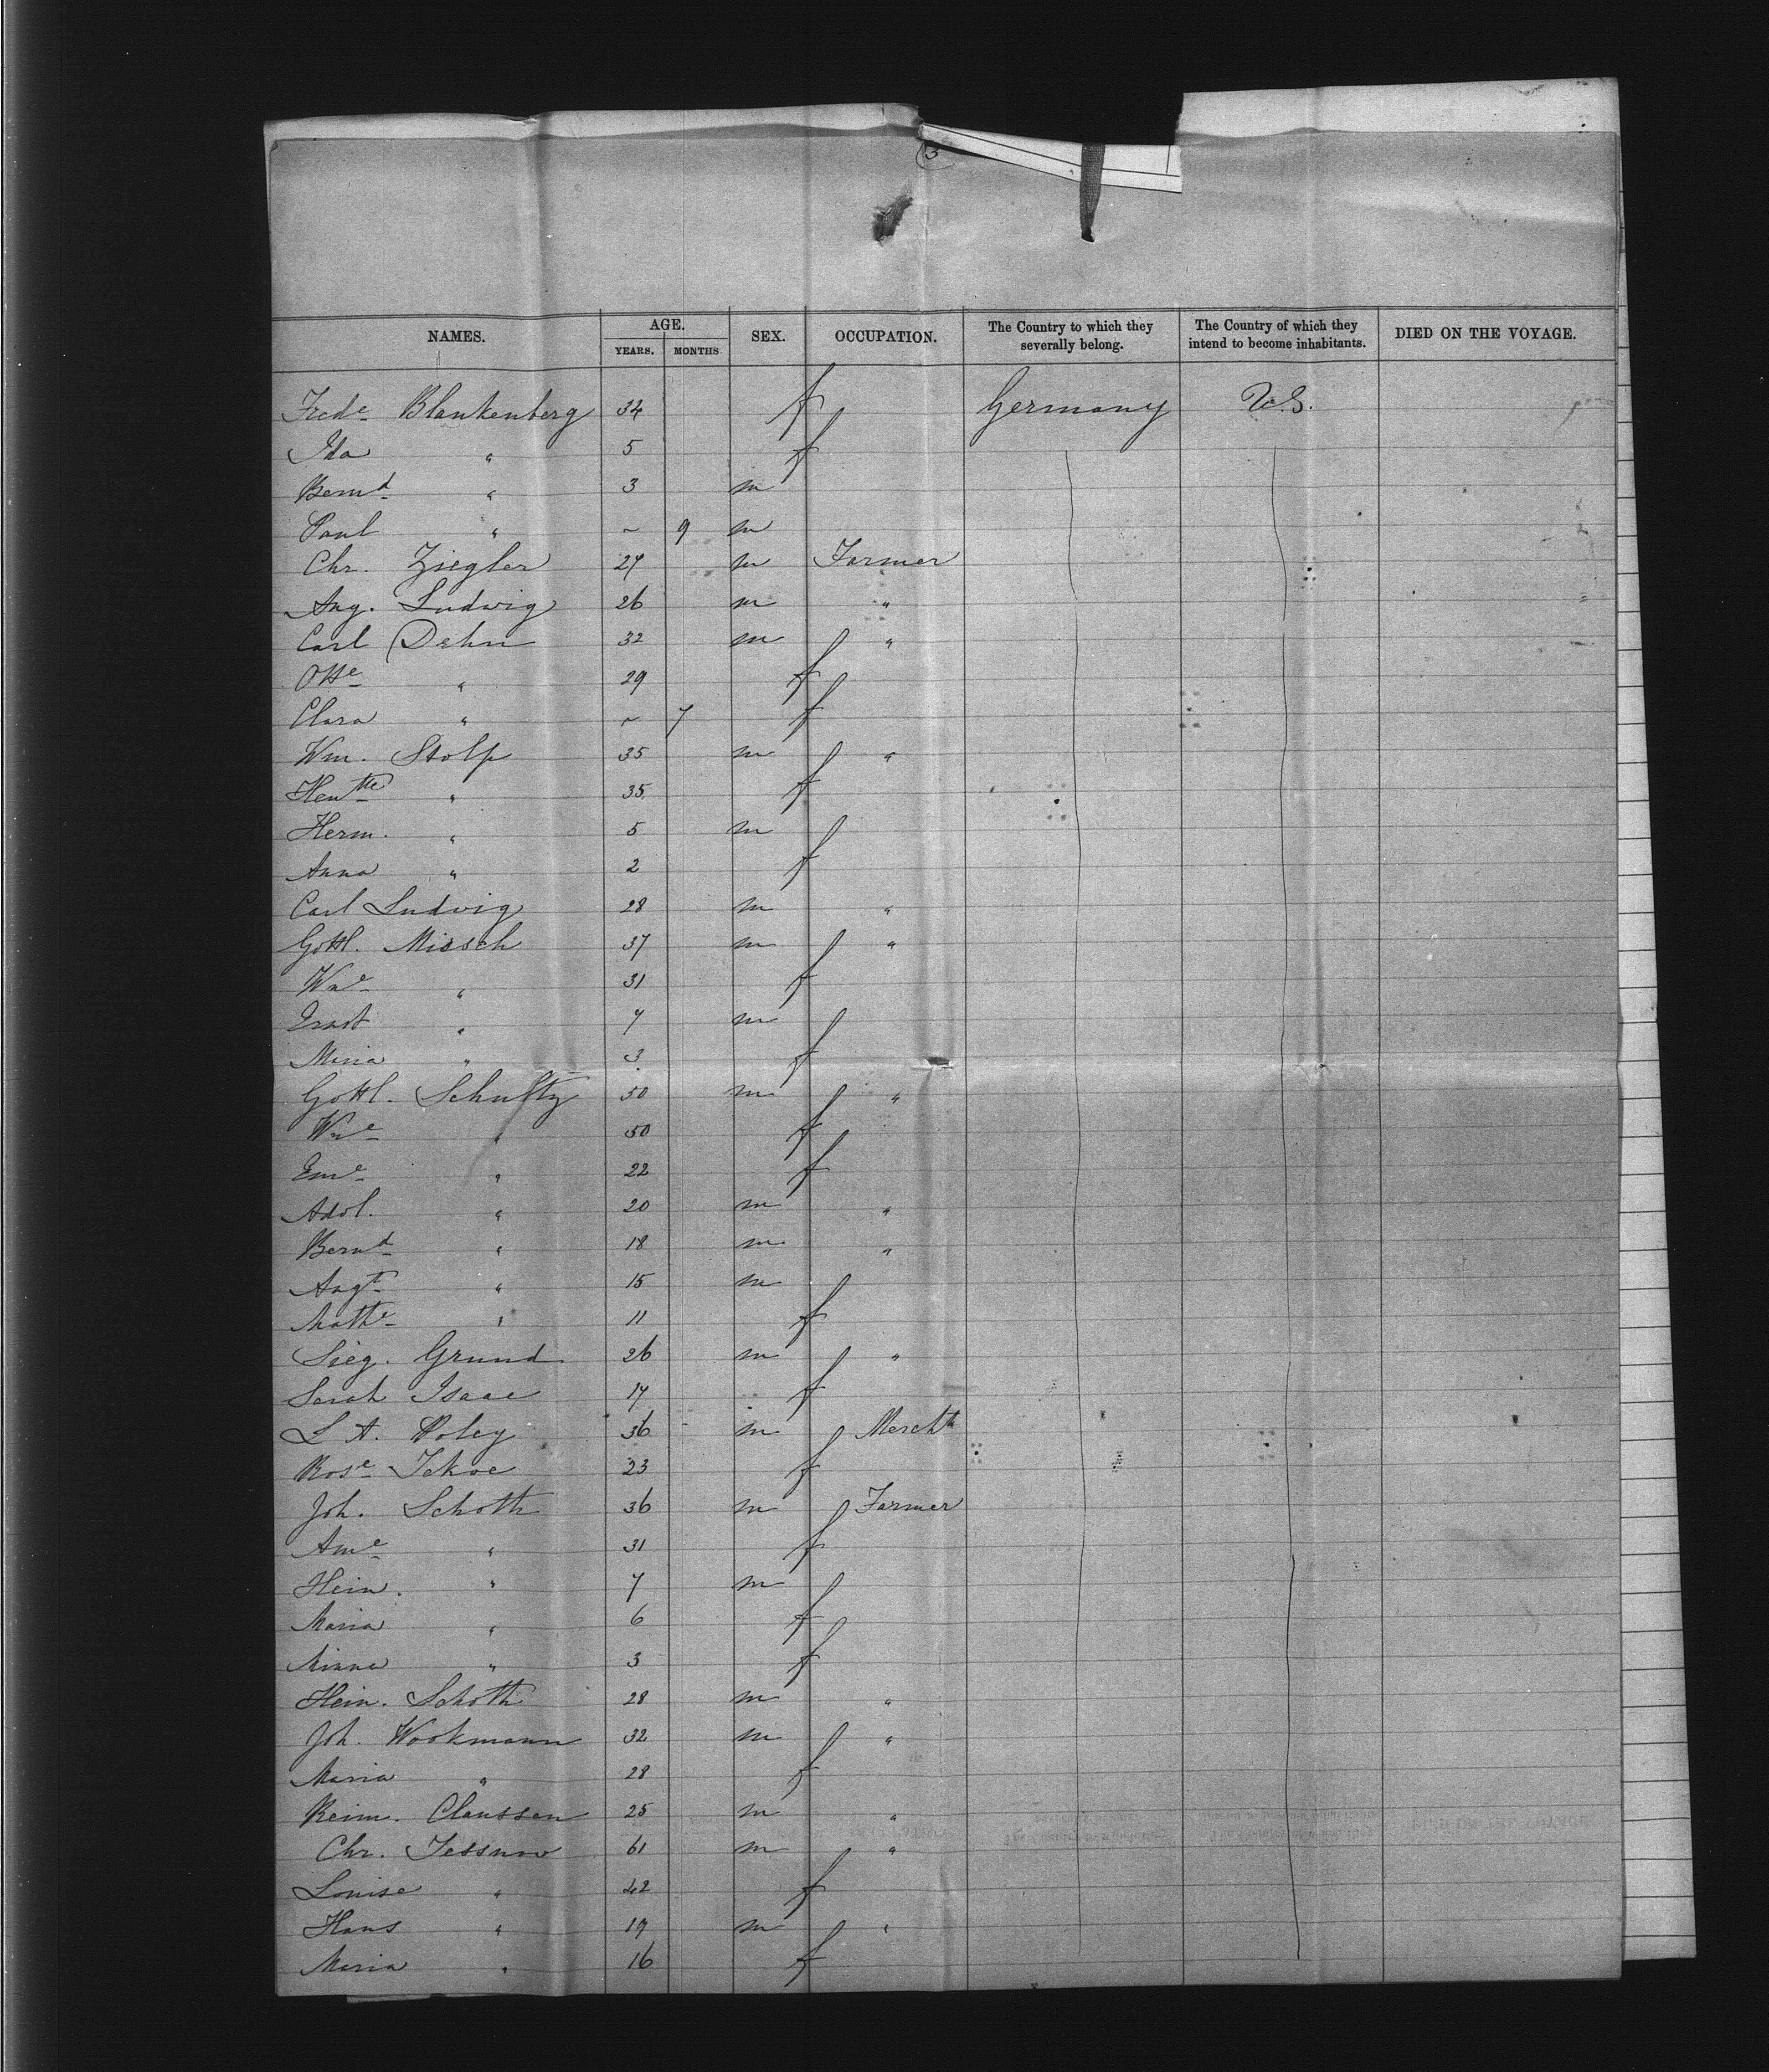 3
NAMES. AGE. SEX. OCCUPATION. The Country to which they severally belong. The Country of which they intend to become inhabitants. DIED ON THE VOYAGE.
YEARS. MONTHS
Frede Blankenberg 34 f Germany U.S.
Ida " 5 f
Bernd " 3 m
Paul " ~ 9 m
Chr. Ziegler 27 m Farmer
Aug. Ludwig 26 m "
Carl Dehn 32 m "
Otte " 29 f
Clara " ~ 7 f
Wm. Stolp 35 m "
Hentte " 35 f
Herm. " 5 m
Anna " 2 f
Carl Ludwig 28 m "
Gottl. Missch 37 m "
Wne " 31 f
Ernst " 7 m
Maria " 3 f
Gottl. Schultz 50 m "
Wne " 50 f
Eme " 22 f
Adol. " 20 m "
Bernd " 18 m "
Augt " 15 m
Mathe " 11 f
Sieg. Grund 26 m "
Sarah Isaac 17 f
L A. Poley 36 m Mercht
Rose Ickoe 23 f
Joh. Schoth 36 m Farmer
Ame " 31 f
Hein. " 7 m
Maria " 6 f
Minna " 3 f
Hein. Schoth 28 m "
Joh. Wookmann 32 m "
Maria " 28 f
Reim. Claussen 25 m "
Chr. Jessnow 61 m "
Louise " 42 f
Hans " 19 m "
Maria " 16 f